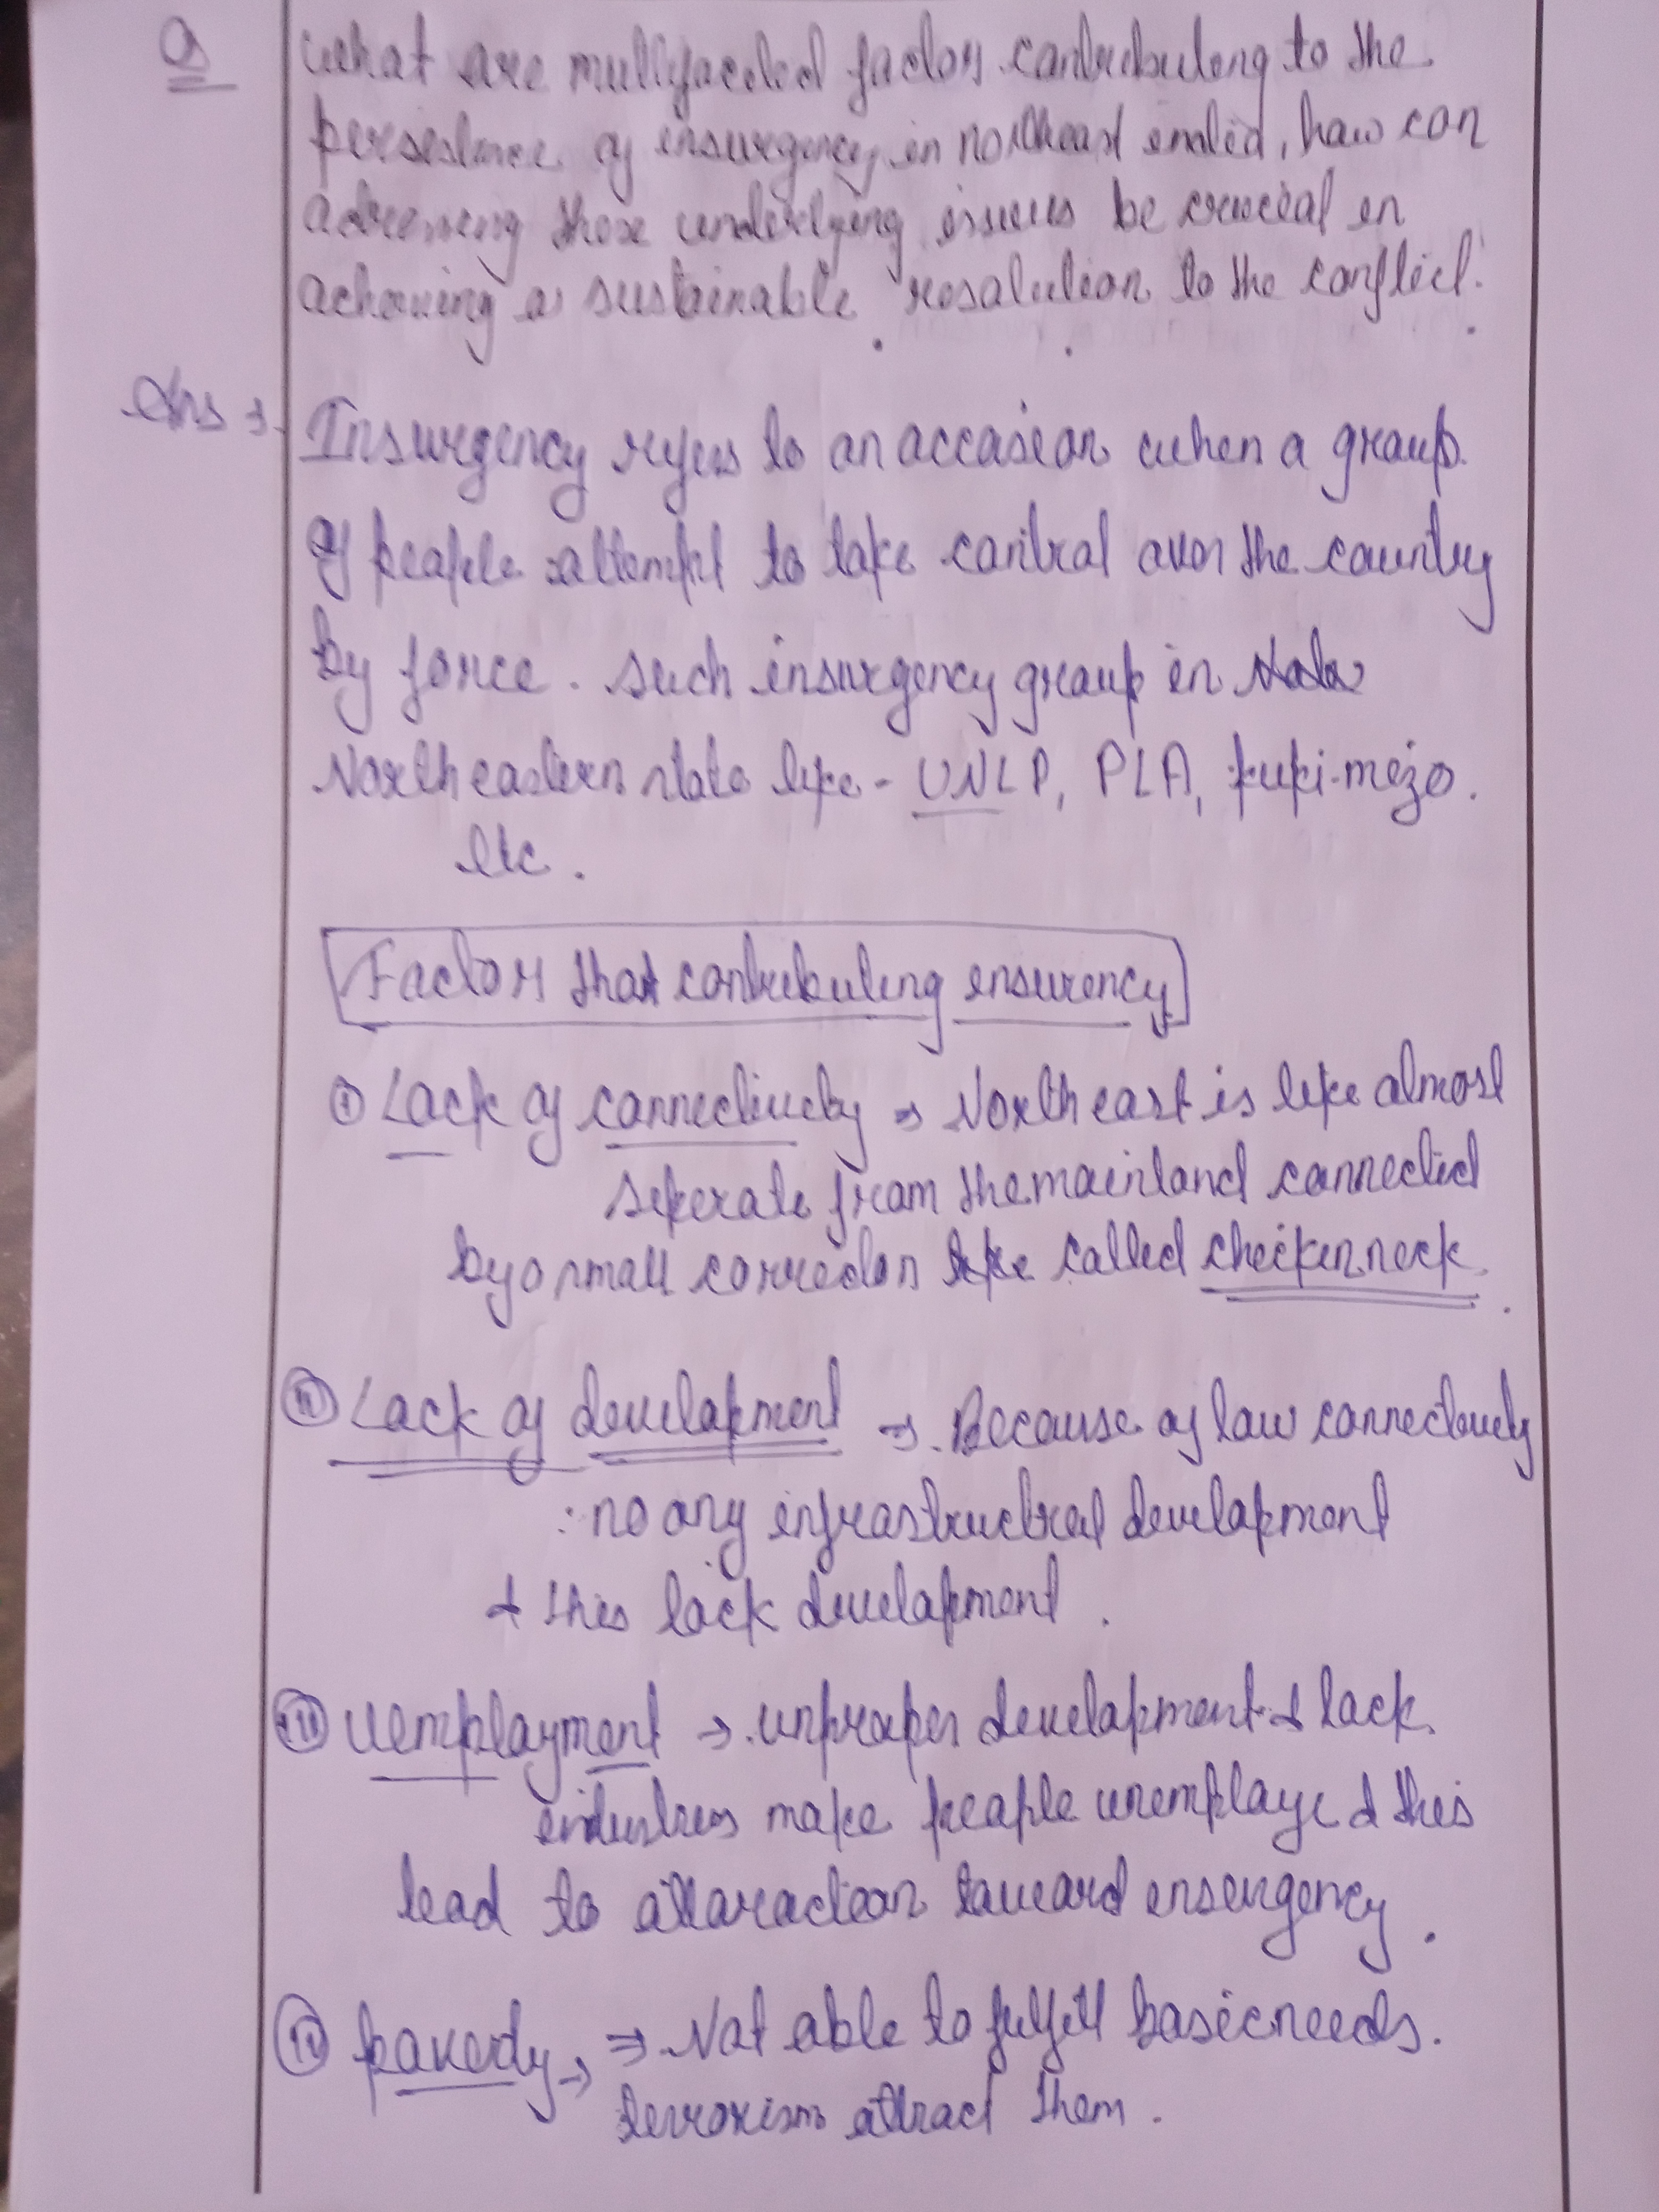 Q What are multifaceted factors contributing to the
persistence of insurgency in northeast india, how can
adressing these underlying issues be crucial in
achieving a sustainable resolution to the conflict.
Ans → Insurgency refers to an occasion when a group
of people attempt to take control over the country
by force. Such insurgency group in
Northeastern state like - UNLP, PLA, kuki-mizo.
etc.
Factors that contributing insurency
① Lack of connectivity → North east is like almost
seperate from the mainland connected
by a small corredor like called cheikenneck.
② Lack of development → Because of low connectivity
no any infrastructral development
& this lack development.
③ Uemployment → unproper development & lack
industries make people unemploye & this
lead to attaraction toward insurgency.
④ poverty → ⇒ Not able to fulfill basic needs.
terrorism attract them.